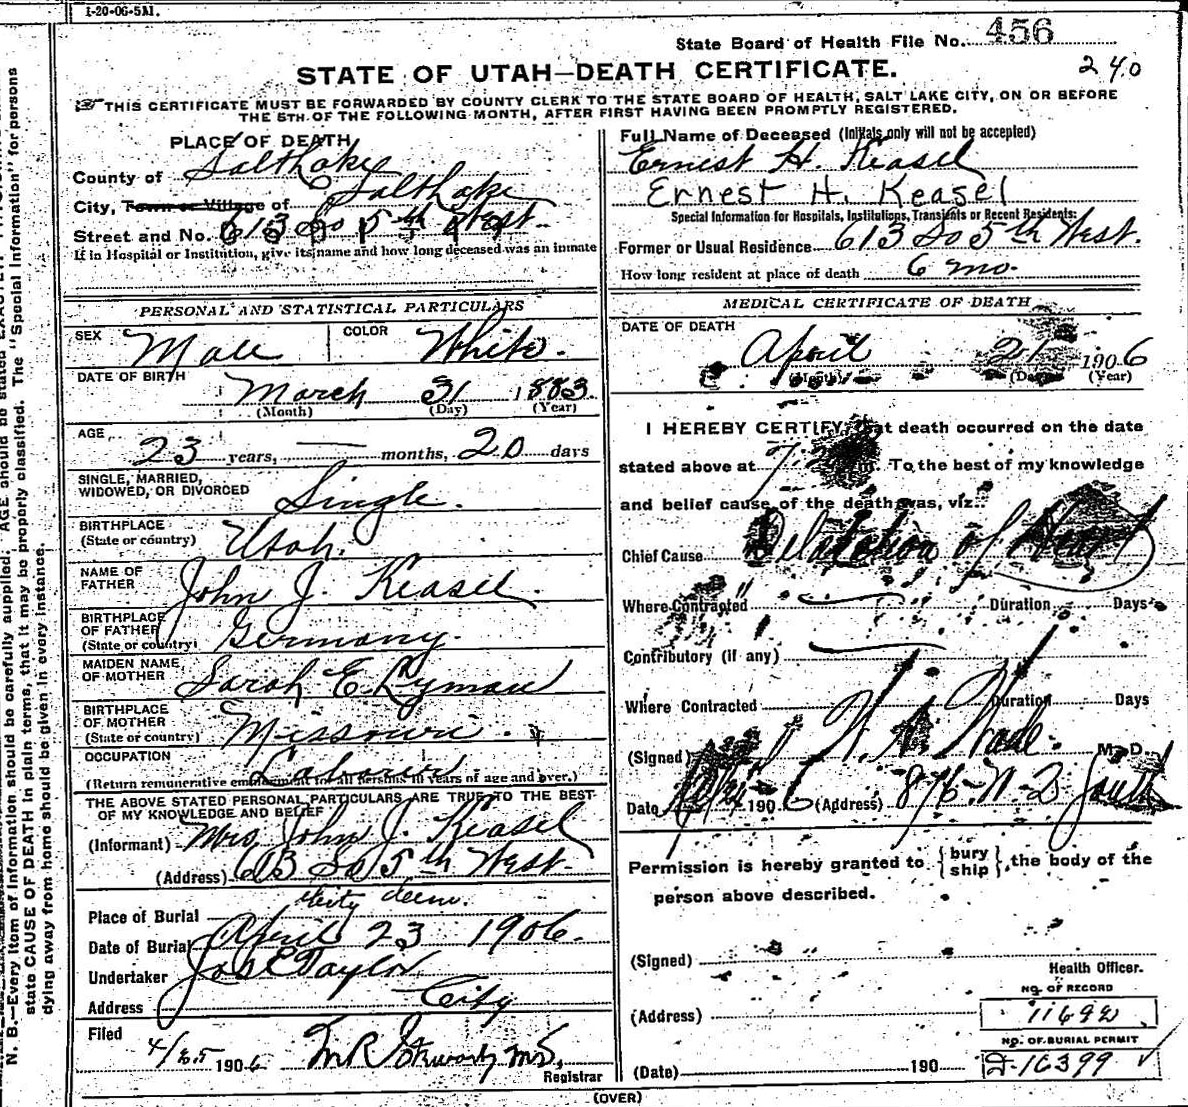 1-20-06-5M.
State Board of Health File No. 456
STATE OF UTAH—DEATH CERTIFICATE.
240
THIS CERTIFICATE MUST BE FORWARDED BY COUNTY CLERK TO THE STATE BOARD OF HEALTH, SALT LAKE CITY, ON OR BEFORE
THE 5TH OF THE FOLLOWING MONTH, AFTER FIRST HAVING BEEN PROMPTLY REGISTERED.
PLACE OF DEATH
County of Salt Lake
City, Town or Village of Salt Lake
Street and No. 613 So 5th West.
If in Hospital or Institution, give its name and how long deceased was an inmate
Full Name of Deceased (Initials only will not be accepted)
Ernest H. Keasel
Ernest H. Keasel
Special Information for Hospitals, Institutions, Transients or Recent Residents:
Former or Usual Residence 613 So 5th West.
How long resident at place of death 6 mo.
PERSONAL AND STATISTICAL PARTICULARS
SEX Male COLOR White.
DATE OF BIRTH March 31 1883.
(Month) (Day) (Year)
AGE 23 years, — months, 20 days
SINGLE, MARRIED,
WIDOWED, OR DIVORCED Single.
BIRTHPLACE
(State or country) Utah.
NAME OF
FATHER John J. Keasel.
BIRTHPLACE
OF FATHER
(State or country) Germany.
MAIDEN NAME
OF MOTHER Sarah E. Ryman
BIRTHPLACE
OF MOTHER
(State or country) Missouri.
OCCUPATION Laborer
(Return remunerative employment for all persons 10 years of age and over.)
THE ABOVE STATED PERSONAL PARTICULARS ARE TRUE TO THE BEST
OF MY KNOWLEDGE AND BELIEF
(Informant) Mrs John J. Keasel
(Address) 613 So 5th West.
Place of Burial City Cem.
Date of Burial April 23 1906.
Undertaker Jos E Taylor
Address City
Filed
4/25 1906
Registrar
MEDICAL CERTIFICATE OF DEATH
DATE OF DEATH
April 21 1906
(Month) (Day) (Year)
I HEREBY CERTIFY, that death occurred on the date
stated above at 7 m. To the best of my knowledge
and belief cause of the death was, viz.:
Chief Cause Delatation of Heart
Where Contracted Duration Days
Contributory (if any)
Where Contracted Duration Days
(Signed) M. D.
Date April 1906 (Address) 876 W 2 South
Permission is hereby granted to {bury ship}, the body of the
person above described.
(Signed)
Health Officer.
(Address)
NO. OF RECORD
11692
NO. OF BURIAL PERMIT
(Date) 190 D-16399
(OVER)
N. B.—Every item of information should be carefully supplied. AGE should be stated EXACTLY.
state CAUSE OF DEATH in plain terms, that it may be properly classified. The "Special Information" for persons
dying away from home should be given in every instance.